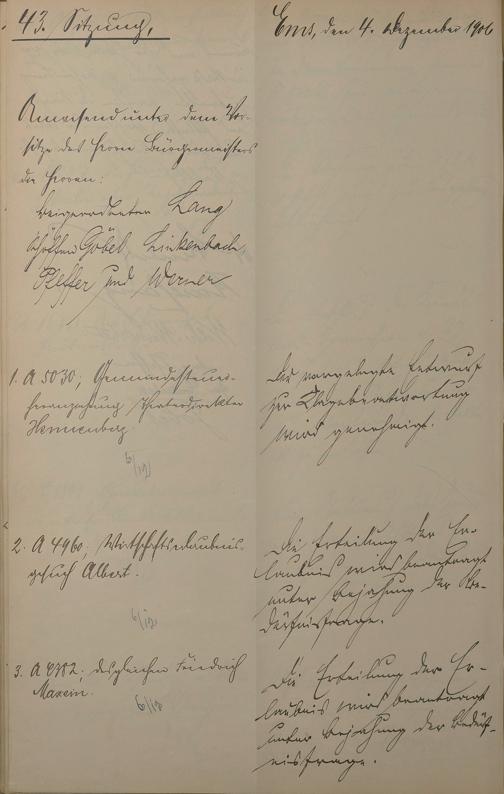 43. Sitzung,
Ems, den 4. Dezember 1906
Anwesend unter dem Vor-
sitze des Herrn Bürgermeisters
die Herren:
Beigeordneten Lang
Schöffen Göbel, Linkenbach,
Pfeffer und Werner
1. A 5030; Gemeindesteuer-
heranziehung Theaterdirektor
Hennenberg.
6/12
Der vorgelegte Entwurf
zur Klagebeantwortung
wird genehmigt.
2. A 4960; Wirtschaftserlaubnis-
gesuch Albert.
6/12
Die Erteilung der Er-
laubnis wird beantragt
unter Bejahung der Be-
dürfnisfrage.
3. A; desgleichen Friedrich
Maxein.
6/12
Die Erteilung der Er-
laubnis wird beantragt
unter Bejahung der Bedürf-
nisfrage.